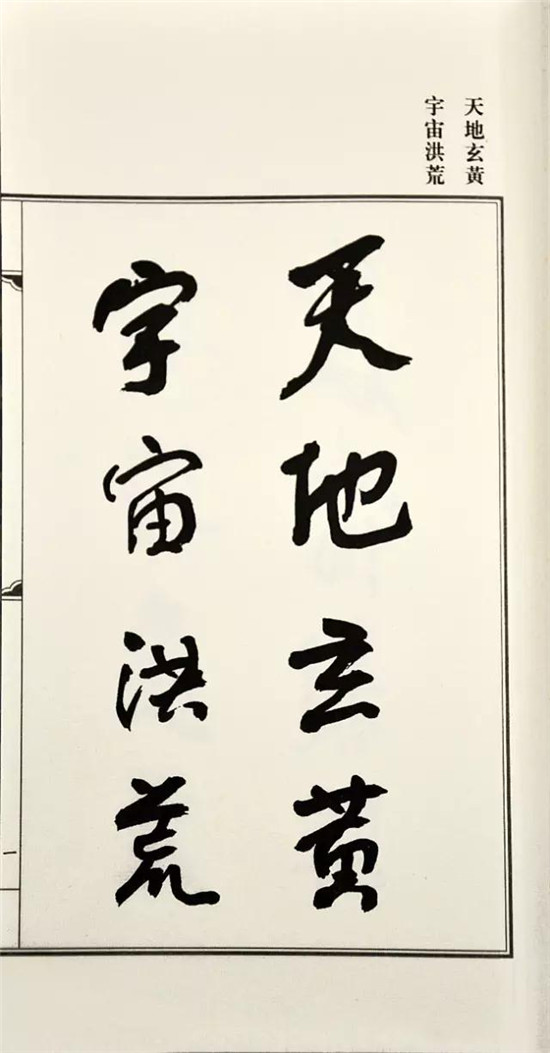 天地玄黄
宇宙洪荒
天地玄黄
宇宙洪荒
一